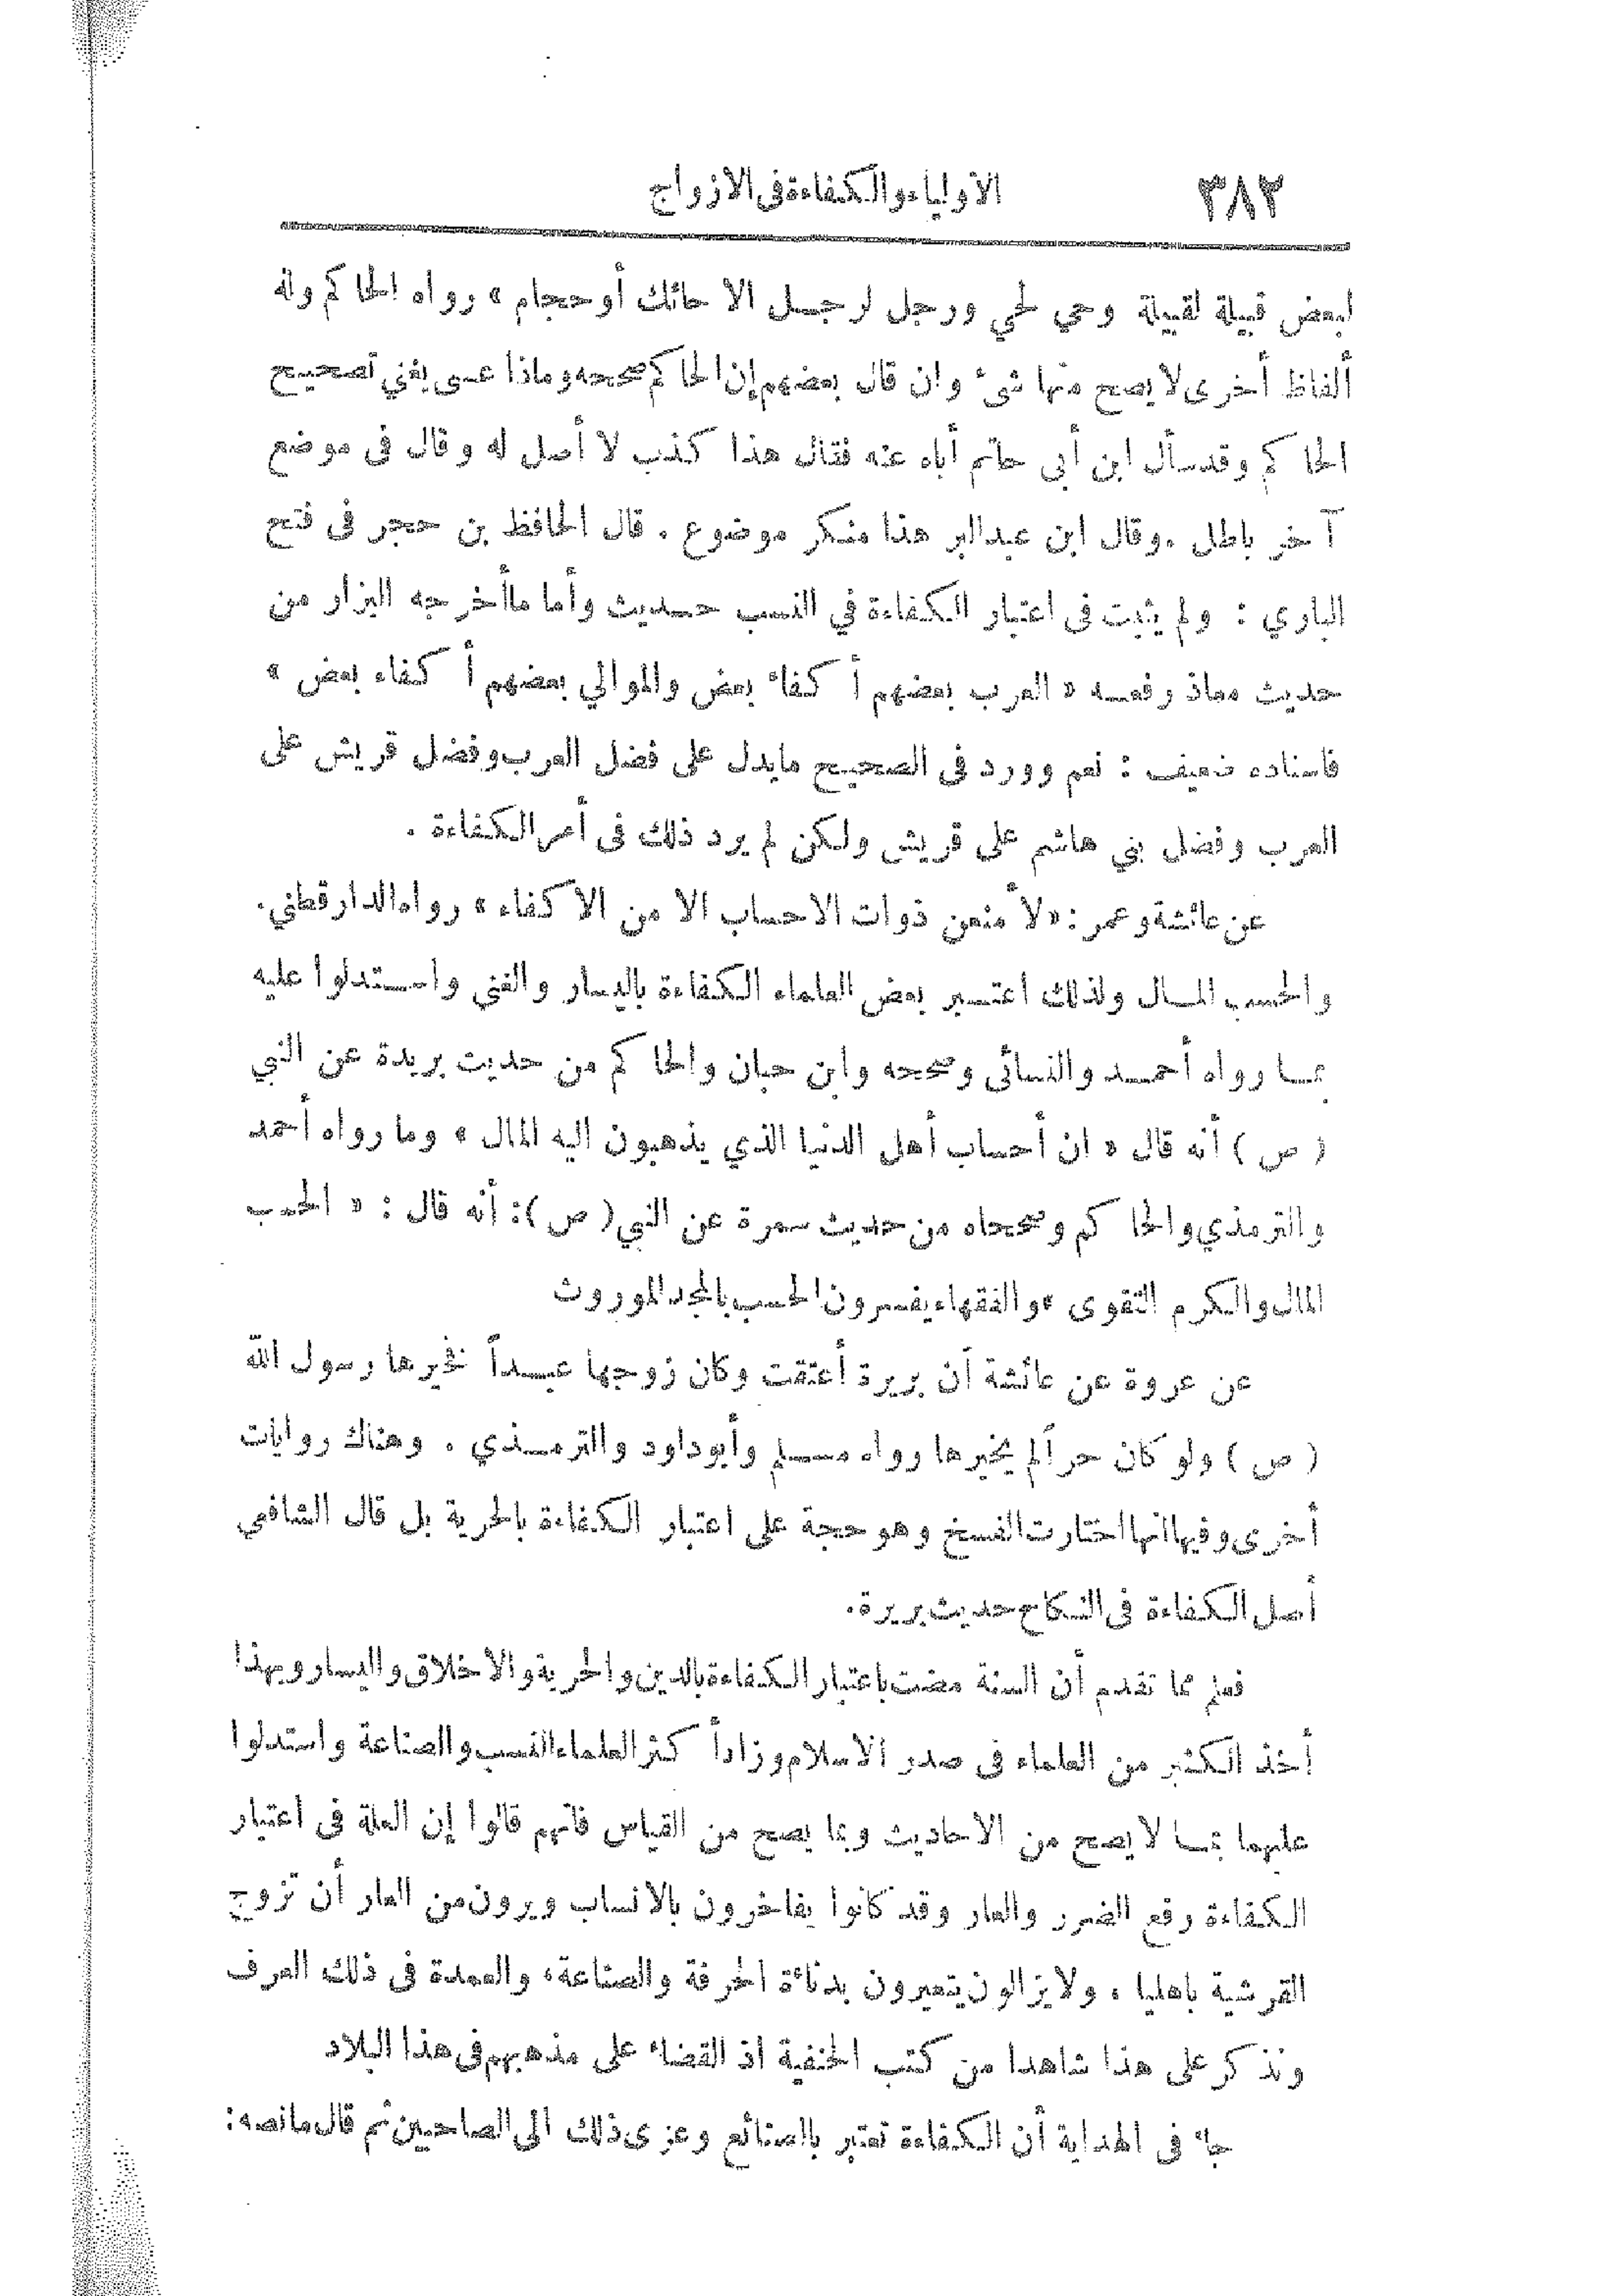 ٣٨٢ الاولياء والكفاءة فى الازواج
لبعض قبيلة لقبيلة وحي لحي ورجل لرجل الا حائك أو حجام » رواه الحاكم وله
ألفاظ أخرى لا يصح منها شىء وان قال بعضهم إن الحاكم صححه وماذا عسى يغني تصحيح
الحاكم وقد سأل ابن أبي حاتم أباه عنه فقال هذا كذب لا أصل له وقال فى موضع
آخر باطل . وقال ابن عبدالبر هذا منكر موضوع . قال الحافظ بن حجر فى فتح
الباري : ولم يثبت فى اعتبار الكفاءة في النسب حديث وأما ما أخرجه البزار من
حديث معاذ رفعه « العرب بعضهم أكفاء بعض والموالي بعضهم أكفاء بعض »
فاسناده ضعيف : نعم وورد فى الصحيح مايدل على فضل العرب وفضل قريش على
العرب وفضل بني هاشم على قريش ولكن لم يرد ذلك فى أمر الكفاءة .
عن عائشة وعمر : « لأ منعن ذوات الاحساب الا من الاكفاء » رواه الدارقطني .
والحسب المال ولذلك اعتبر بعض العلماء الكفاءة باليسار والغنى واستدلوا عليه
بما رواه أحمد والنسائى وصححه وابن حبان والحاكم من حديث بريدة عن النبي
( ص ) أنه قال « ان أحساب أهل الدنيا الذي يذهبون اليه المال » وما رواه أحمد
والترمذي والحاكم وصححاه من حديث سمرة عن النبي ( ص ) : أنه قال : « الحسب
المال والكرم التقوى » والفقهاء يفسرون الحسب بالمجد الموروث
عن عروة عن عائشة أن بريرة أعتقت وكان زوجها عبداً فخيرها رسول الله
( ص ) ولو كان حراً لم يخيرها رواه مسلم وأبو داود والترمذي . وهناك روايات
أخرى وفيها انها اختارت الفسخ وهو حجة على اعتبار الكفاءة بالحرية بل قال الشافعي
أصل الكفاءة فى النكاح حديث بريرة .
فعلم مما تقدم أن السنة مضت باعتبار الكفاءة بالدين والحرية والاخلاق واليسار وبهذا
أخذ الكثير من العلماء فى صدر الاسلام وزاد أكثر العلماء النسب والصناعة واستدلوا
عليهما بما لا يصح من الاحاديث وبما يصح من القياس فانهم قالوا إن العلة فى اعتبار
الكفاءة رفع الضرر والعار وقد كانوا يفاخرون بالانساب ويرون من العار أن تزوج
القرشية باهليا ، ولا يزالون يتعيرون بدناءة الحرفة والصناعة ، والعمدة فى ذلك العرف
ونذكر على هذا شاهدا من كتب الحنفية اذ القضاء على مذهبهم فى هذا البلاد
جاء فى الهداية أن الكفاءة تعتبر بالصنائع وعزى ذلك الى الصاحبين ثم قال مانصه :